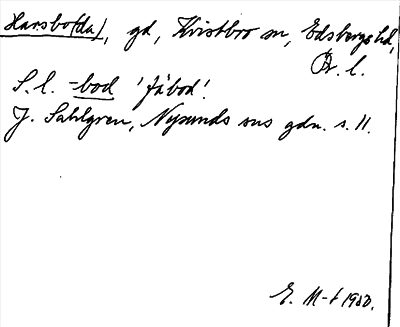 Harsbo(da), gd, Kvistbro sn, Edsbergs hd,
Ör. l.
S. l. -bod 'fäbod'.
J. Sahlgren, Nysunds sns gdn. s. 11.
E. M-t 1980.